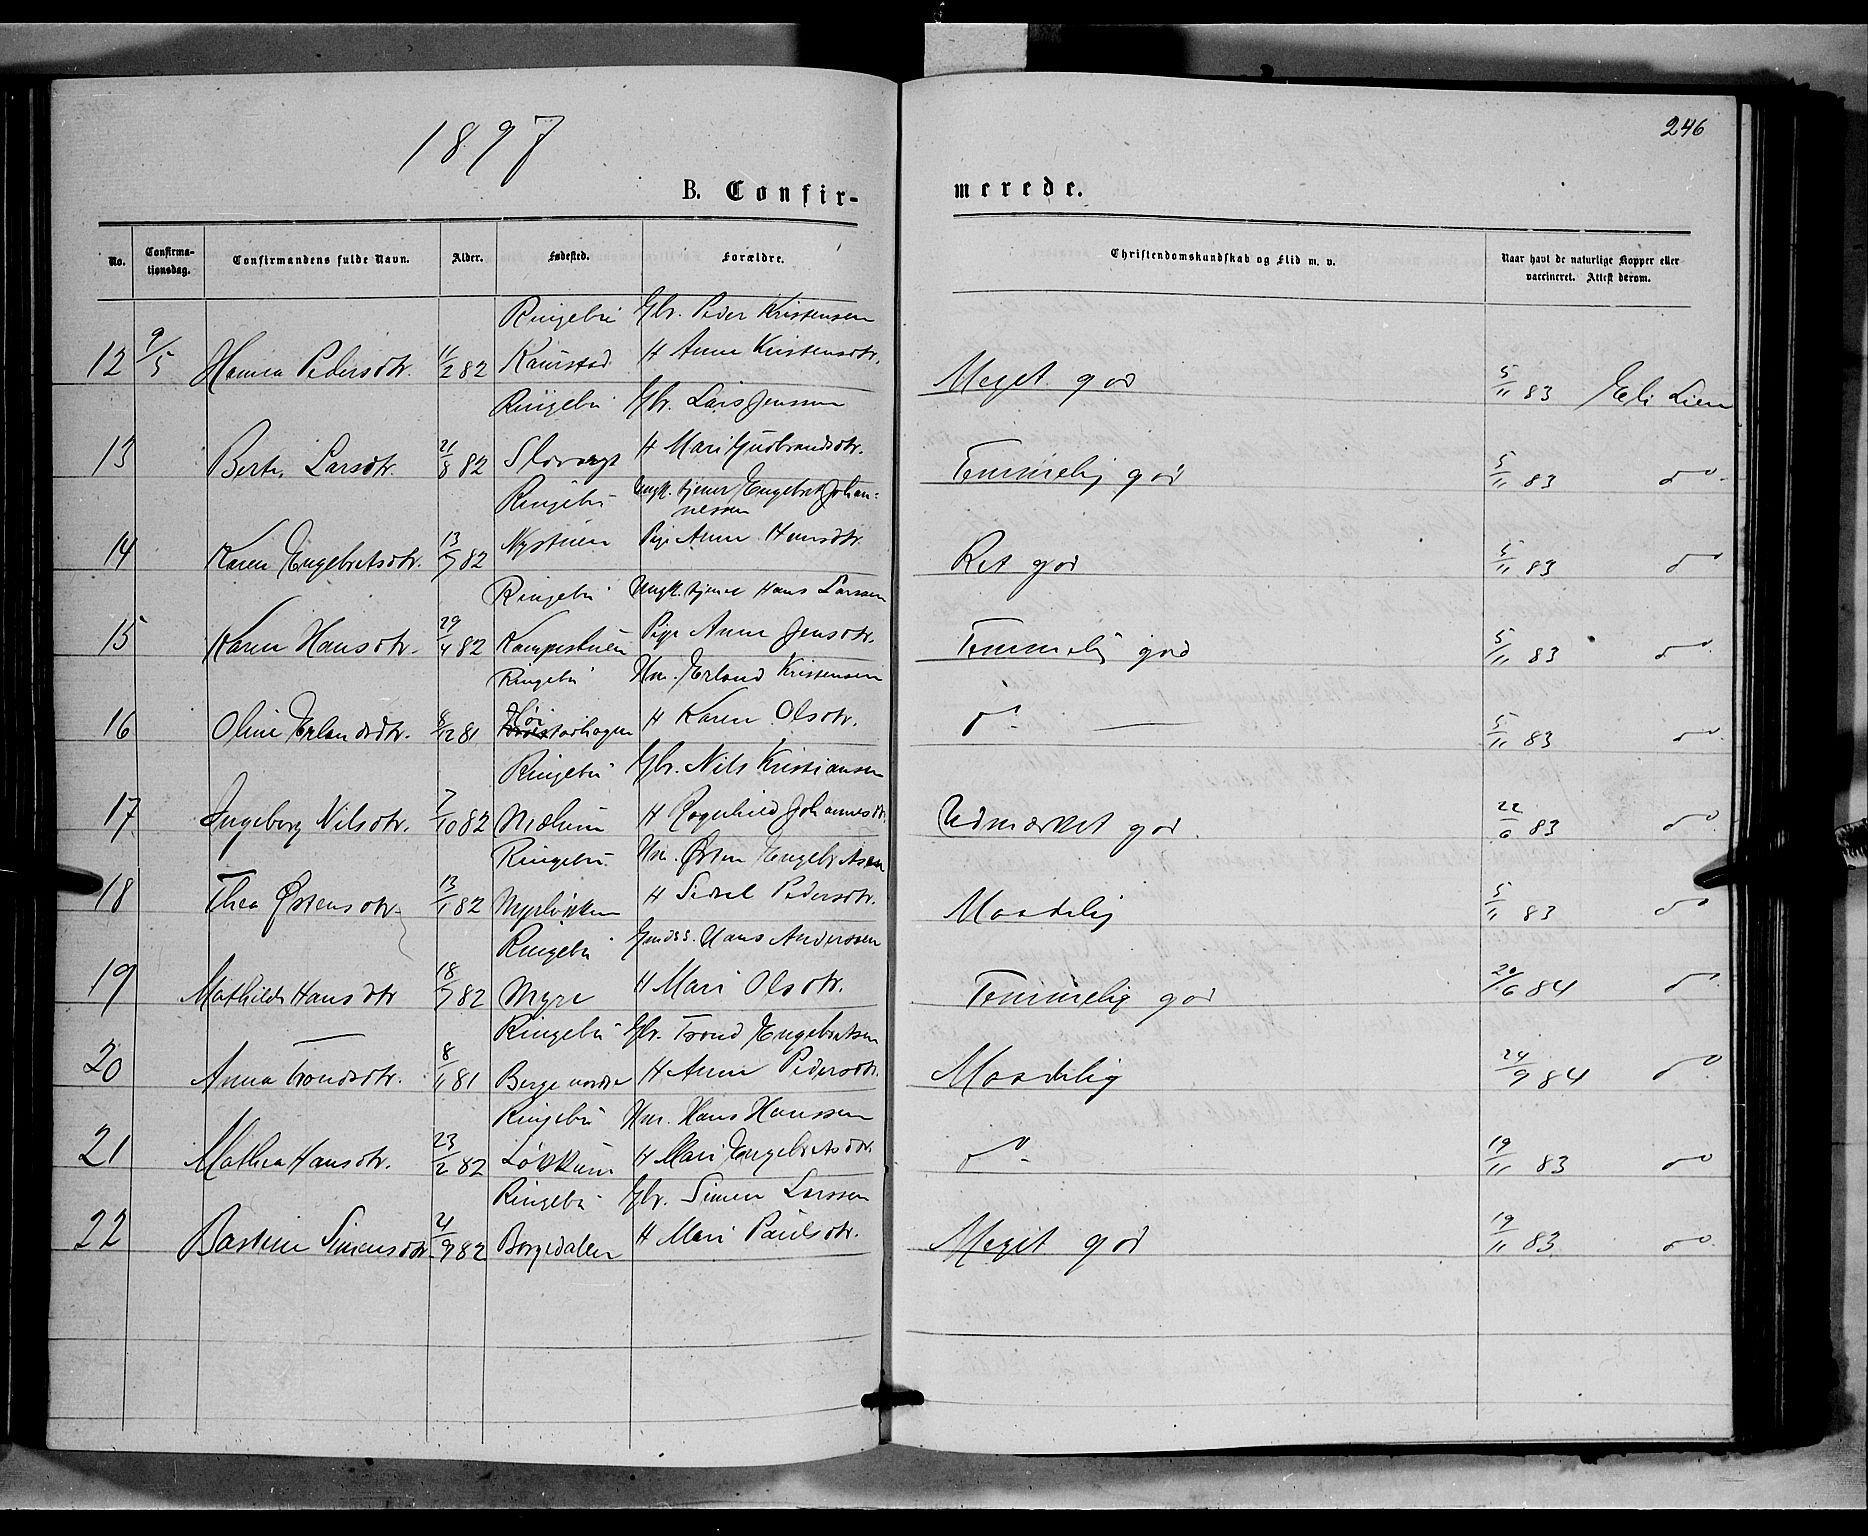 1897
246
B. Confir-
merede.
No.
Confirma-
tionsdag.
Confirmandens fulde Navn.
Alder.
Fødested.
Forældre.
Christendomskundskab og Flid m. v.
Naar havt de naturlige Kopper eller
vaccineret. Attest derom.
Ringebu Gbr. Peder Kristensen
12 9/5 Pedersdtr. 11/2 82 Kanistad H Anne Kristensdtr. Meget god 5/11 83 Eli Lien
Ringebu Gbr. Lars Jenssen
13 Berte Larsdtr. 21/8 82 H Mari Gudbrandsdtr. Temmelig god 5/11 83 do
Ringebu Ungk. tjener Engebret Johan-
nessen
14 Karen Engebretsdtr. 13/7 82 Nystuen Pige Anne Hansdtr. Ret god 5/11 83 do
Ringebu Ungk. tjener Hans Larssen
15 Karen Hansdtr. 29/4 82 Kampestuen Pige Anne Jensdtr. Temmelig god 5/11 83 do
Ringebu Hm. Erland Kristensen
16 Oline Erlandsdtr. 8/12 81 H Karen Olsdtr. do 5/11 83 do
Ringebu Gbr. Nils Kristiansen
17 Ingeborg Nilsdtr. 7/10 82 Mælum H Ragnhild Johannesdtr. Udmærket god 22/6 83 do
Ringebu Hm. Østen Engebretsen
18 Thea Østensdtr. 13/1 82 Myrløkken H Sidsel Pedersdtr. Maadelig 5/11 83 do
Ringebu Hans Anderssen
19 Mathilde Hansdtr 18/7 82 Myre H Mari Olsdtr. Temmelig god 20/6 84 do
Ringebu Gbr. Trond Engebretsen
20 Anna Trondsdtr. 8/11 81 Berge nordre H Anne Pedersdtr. Maadelig 24/9 84 do
Ringebu Hm. Hans Hanssen
21 Mathea Hansdtr. 23/2 82 Løkkum H Mari Engebretsdtr. do 19/11 83 do
Ringebu Gbr. Simen Larssen
22 Bastine Simensdtr. 21/9 82 Borgedalen H Mari Paulsdtr. Meget god 19/11 83 do